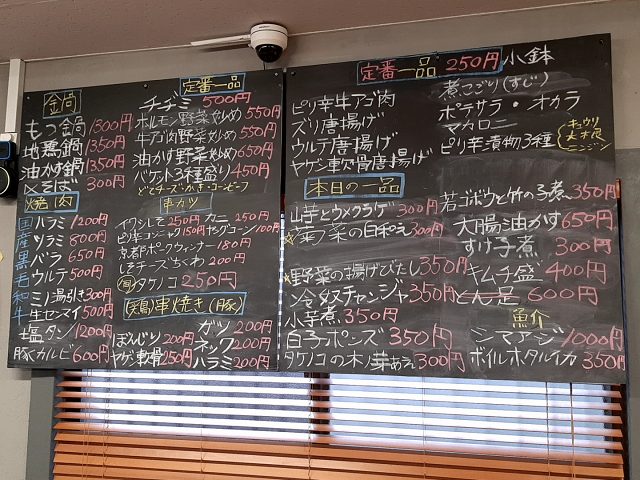 鍋
もつ鍋 1300円
地鶏鍋 1350円
油かす鍋 1350円
〆そば 300円
焼肉
国産黒毛和牛
ハラミ 1200円
ツラミ 800円
バラ 650円
ウルテ 500円
ミノ湯引き 300円
生センマイ 500円
塩タン 1200円
豚カルビ 600円
定番一品
チヂミ 500円
ホルモン野菜炒め 550円
牛アゴ肉野菜炒め 550円
油かす野菜炒め 650円
バケット3種盛り 450円
串カツ
イワシしそ 250円
カニ 250円
ピリ辛コンニャク 150円
ヤングコーン 100円
京都ポークウィンナー 180円
しそチーズちくわ 200円
タケノコ 250円
(鶏)串焼き(豚)
ぼんじり 200円
ヤゲン軟骨 150円
ガツ 200円
ネック 200円
ハラミ 200円
定番一品 250円 小鉢
ピリ辛牛アゴ肉
ズリ唐揚げ
ウルテ唐揚げ
ヤゲン軟骨唐揚げ
煮こごり(すじ)
ポテサラ・オカラ
マカロニ
ピリ辛漬物3種
キュウリ
大根
ニンジン
本日の一品
山芋とウメクラゲ 300円
菜ノ菜の白和え 300円
野菜の揚げびたし 350円
冷メスチャンジャ 350円
小芋煮 350円
白子ポンズ 350円
タケノコの木ノ芽あえ 300円
若ゴボウと竹の子煮 350円
大腸油かす 650円
すけ子煮 300円
キムチ盛 400円
とん足 600円
魚介
シマアジ 1000円
ボイルホタルイカ 350円